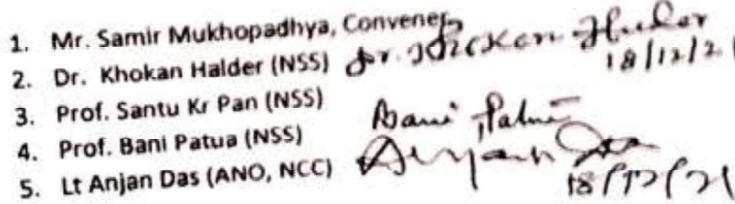 1. Mr. Samir Mukhopadhya, Convener
2. Dr. Khokan Halder (NSS) Dr. Khokan Halder
18/12/21
3. Prof. Santu Kr Pan (NSS)
4. Prof. Bani Patua (NSS) Bani Patua
5. Lt Anjan Das (ANO, NCC) Anjan Das
18/12/21